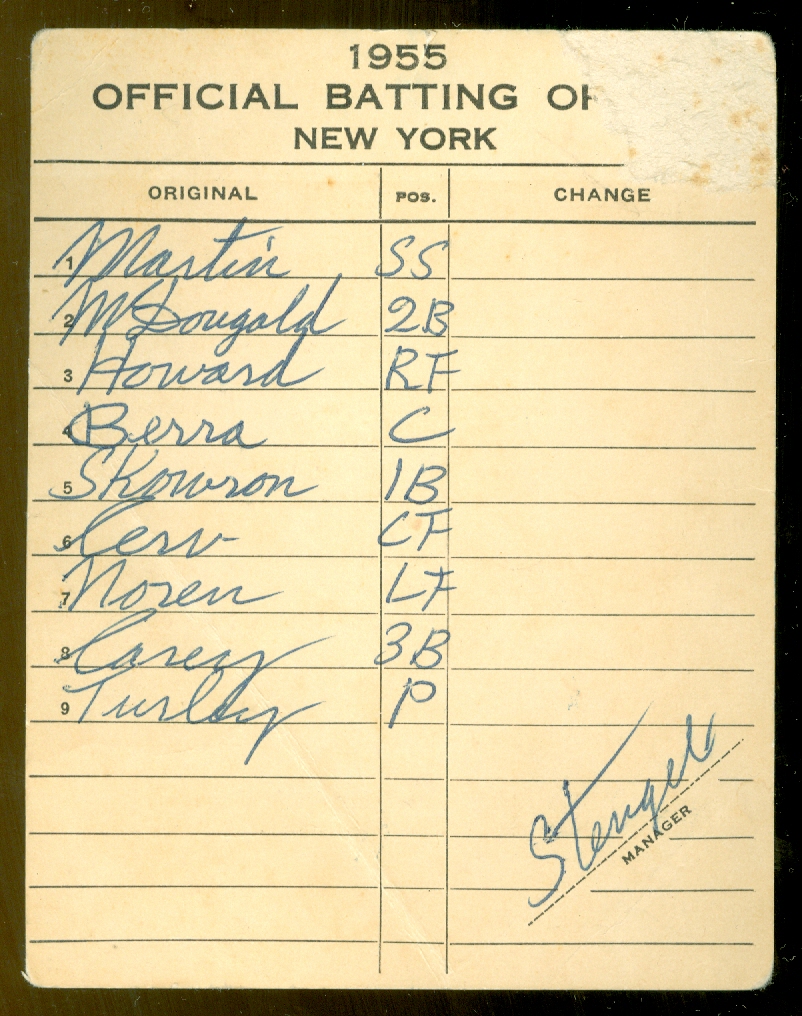 1955
OFFICIAL BATTING OR
NEW YORK
ORIGINAL POS. CHANGE
1 Martin SS
2 McDougald 2B
3 Howard RF
4 Berra C
5 Skowron 1B
6 Cerv CF
7 Noren LF
8 Carey 3B
9 Turley P
Stengel
MANAGER